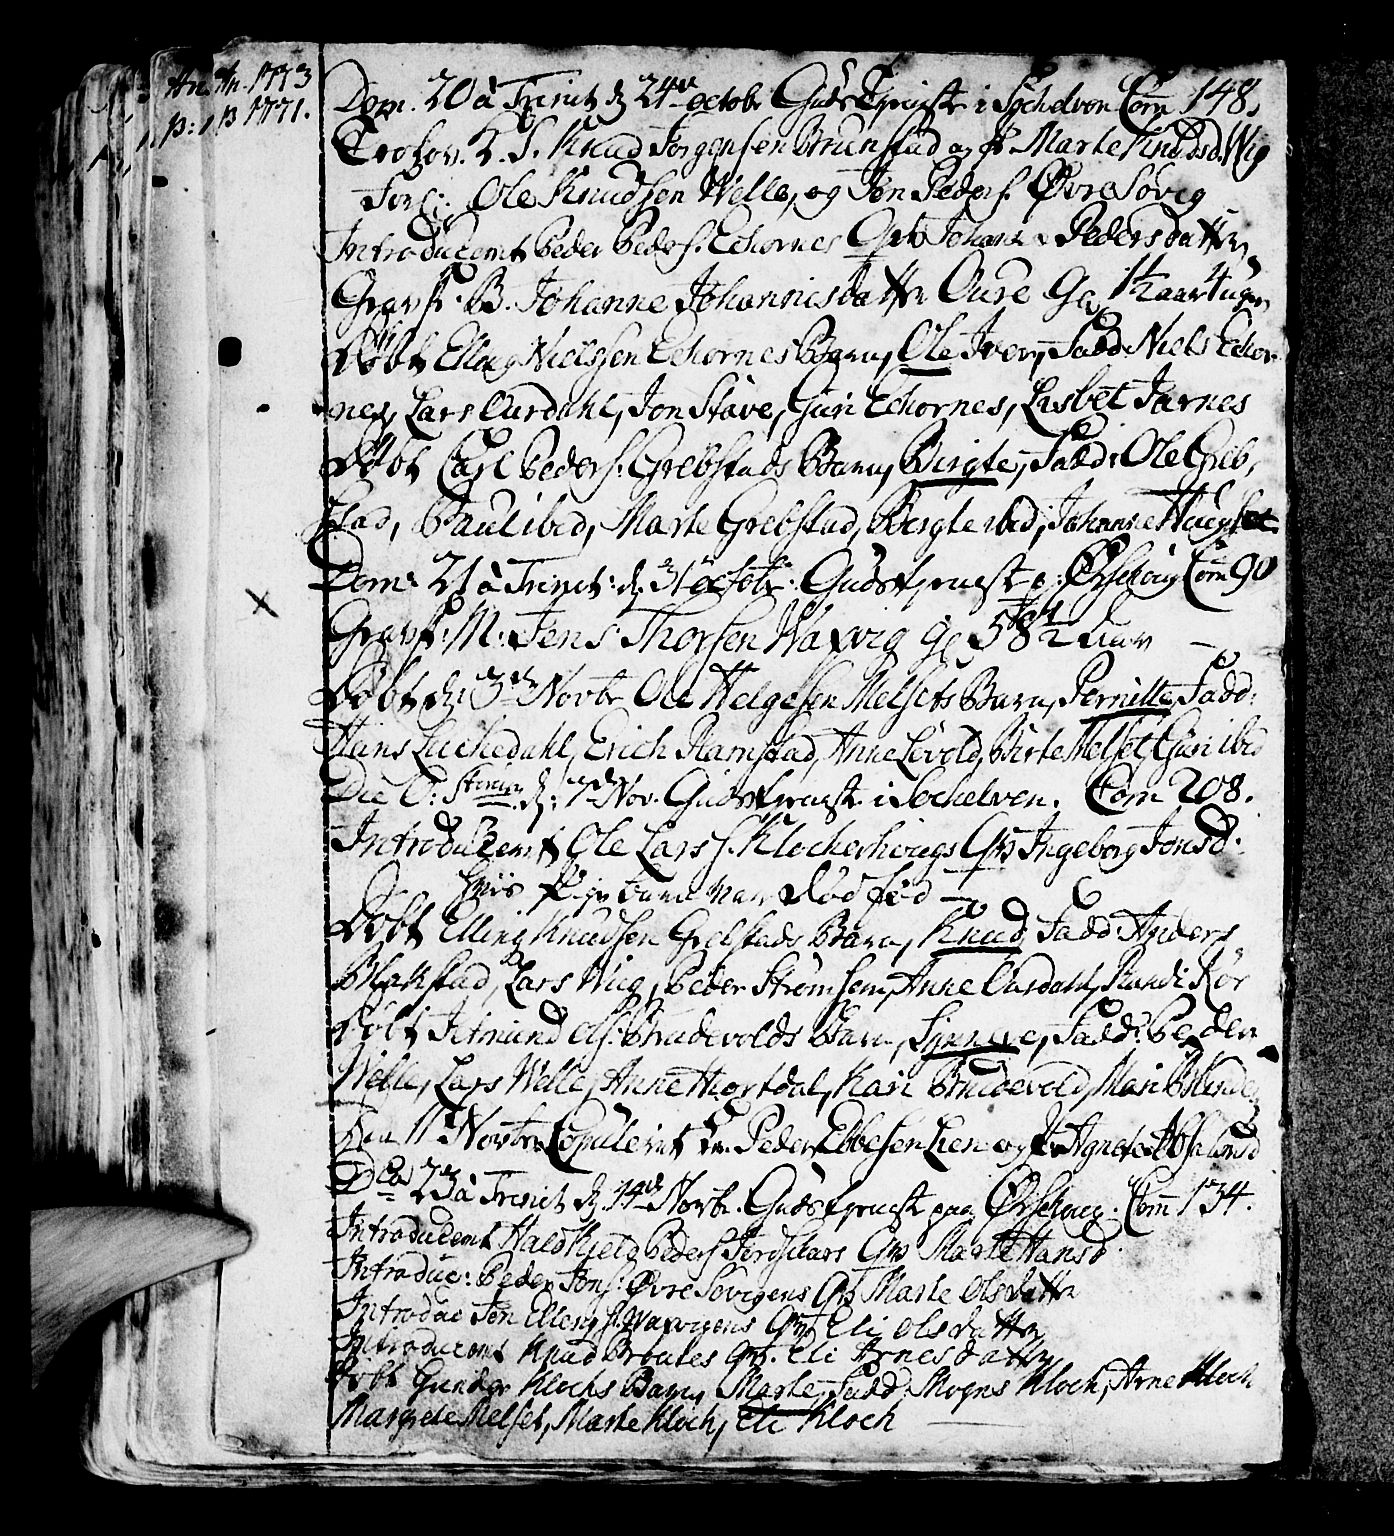 1773
1771.
Dom. 20 à Trinit d 24de octobr Gudstjenest i Sychelven Com 148.
Trolov. K. S. Knud Jørgensen Brunstad og P. Marte Knudsd. Wig
Forl: Ole Knudsen Welle, og Jon Peders. Øvre Søvig
Introducerit Peder Peders. Echornes Qv Johane Pedersdatter
Gravf. B. Johanne Johannisdatter Oure Gl 1½ aar 4 uger
Døbt Elling Nielssen Echornes Barn, Ole Iver, Fadd: Niels Echor
nes, Lars Aurdahl, Jon Stave, Guri Echornes, Lisbet Jarnes
Døbt Carl Peders. Grebstads Barn, Birgte, Fadd: Ole Greb,
stad, Paul ibid, Marte Grebstad, Birgte ibid, Johanne Haugset
Dom: 21 à Trinit: d. 31 octobr: Gudstjenest p: Ørschoug Com 90
Gravf: M: Jens Thorsen Waxvig gl 58½ Aar
Døbt d: 3de Novbr Ole Helgesen Melsets Barn, Pernille, Fadd:
Hans Luchedahl, Erich Ramstad, Anne Løvold, Birte Melset, Guri ibid
Die O: Sterun d: 7de Nov. Gudstjenest i Sochelven. Com 208.
Introducerit Ole Lars s. Klocherhougs Qv Ingeborg Jonsd:
hvis Pige barn var død fød
Døbt Elling Knudsen Grebstads Barn, Knud, Fadd: Anders
Blakstad, Lars Wiig, Peder Strømsem, Anne Aurdahl, Randi Rør
Døbt Jetmund Ols: Brudevolds Barn, Synneve, Fadd: Peder
Welle, Lars Welle, Anne Hiortdal, Kari Brudevold, Mari
11 Novbr Copulerit Peder Ebbesen Lien og Agnete
23 à Trinit d. 14de Novbr. Gudstjenest paa Ørschoug. Com 134.
Introducerit Peders Qv Marte Hansd
Introduc: Peder Jons: Øvre Søvigens Qv Marte Olsdatter
Introduc Jon Ellings. Waxvigens Qv. Eli Olsdatter
Introducerit Knud Qv. Eli Arnesdatter
Døbt Gunder Klochs Barn, Marte, Fadd: Mogns Kloch, Arne Kloch
Margrete Melset, Marte Kloch, Eli Kloch